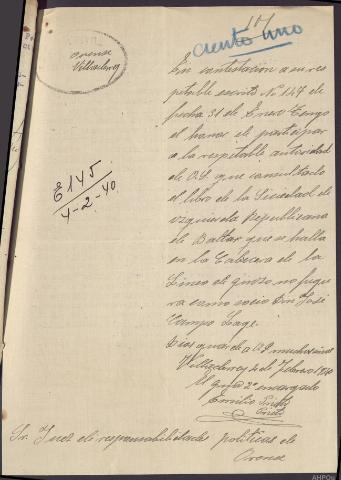 101
ciento uno
Orense
Villaderrey
E 145
4-2-40
En contestación a su res
petable escrito Nº 147 de
fecha 31 de Enero tengo
el honor de participar
a la respetable autoridad
de V.S. que consultado
el libro de la Sociedad de
izquierda Republicana
de Baltar que se halla
en la Cabecera de la
Linea de ginzo no figu
ra como socio Don José
Campo Lage.
Dios guarde a V.S. muchos años
Villaderrey 2 de Febrero 1940
El guardia 2º encargado
Emilio
Sr. Juez de responsabilidades politicas de
Orense
AHPOu